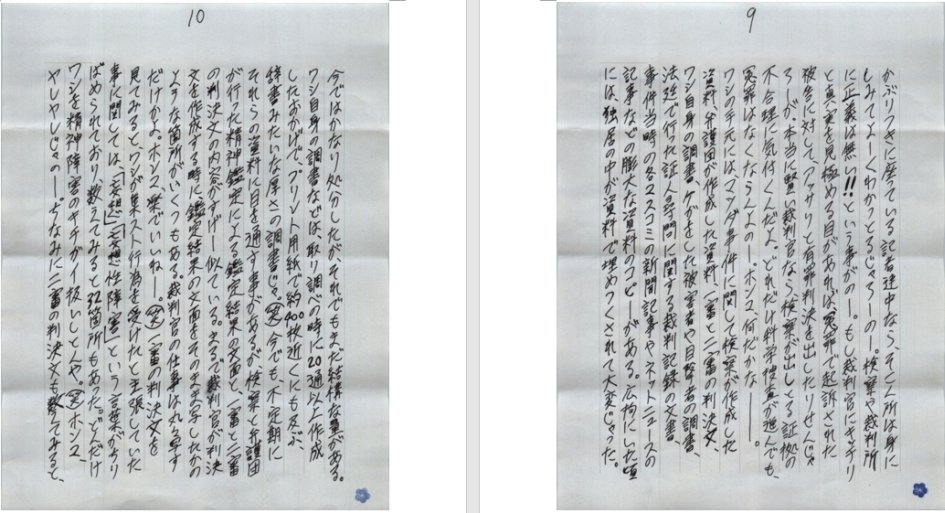 10
今ではかなり処分したが、それでもまだ結構な量がある。
ワシ自身の調書などは取り調べの時に20通以上作成
したおかげで、プリント用紙で約400枚近くにも及ぶ、
辞書みたいな厚さの調書じゃ㊋今でも不定期に
それらの資料に目を通す事があるが検察と弁護団
が行った精神鑑定による鑑定結果の文面と一審と二審
の判決文の内容がすげー似ている。まるで裁判官が判決
文を作成する時に鑑定結果の文面をそのまま写したかの
ような箇所がいくつもある。裁判官の仕事は丸写す
だけかよ。ホンマ、楽でいいねー。㊋一審の判決文を
見てみると、ワシが集スト行為を受けたと主張していた
事に関しては、「妄想」「妄想性障害」という言葉がちり
ばめられており数えてみると32箇所もあった。どんだけ
ワシを精神障害のキチガイ扱いしとんや。㊋ホンマ、
ヤレヤレじゃのー。ちなみに二審の判決文も数えてみると、
9
かぶりつきに座っている記者連中なら、そこん所は身に
しみてよーくわかっとるじゃろーのー。検察や裁判所
に正義は無い!!という事がのー。もし裁判官にキッチリ
と真実を見極める目があれば冤罪で起訴された
被告に対して、アッサリと有罪判決を出したりせんじゃ
ろーが、本当に賢い裁判官なら検察が出しとる証拠の
不合理に気付くんだよ、どれだけ科学捜査が進んでも、
冤罪はなくならんよのー。ホンマ、何だかな―――。
ワシの手元には、マツダ事件に関して検察が作成した
資料、弁護団が作成した資料、一審と二審の判決文、
ワシ自身の調書、ケガをした被害者や目撃者の調書、
法廷で行った証人尋問に関する裁判記録の文書、
事件当時の各マスコミの新聞記事やネットニュースの
記事などの膨大な資料のコピーがある。広拘にいた頃
には、独居の中が資料で埋めつくされて大変じゃった。